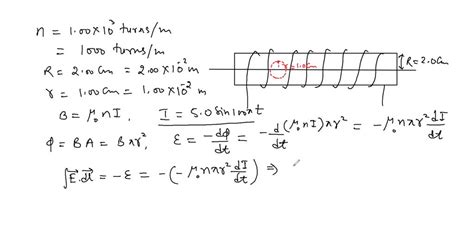 n = 1.00×10³ turns/m
= 1000 turns/m
R = 2.00cm = 2.00×10⁻² m
r = 1.00cm = 1.00×10⁻² m
B = μ₀nI, I = 5.0 sin100πt
φ = BA = Bπr²
ε = -dφ/dt = -d/dt (μ₀nI)πr² = -μ₀nπr² dI/dt
∫E⃗.dl⃗ = -ε = -(-μ₀nπr² dI/dt) ⇒
r=1.0cm
R=2.0cm